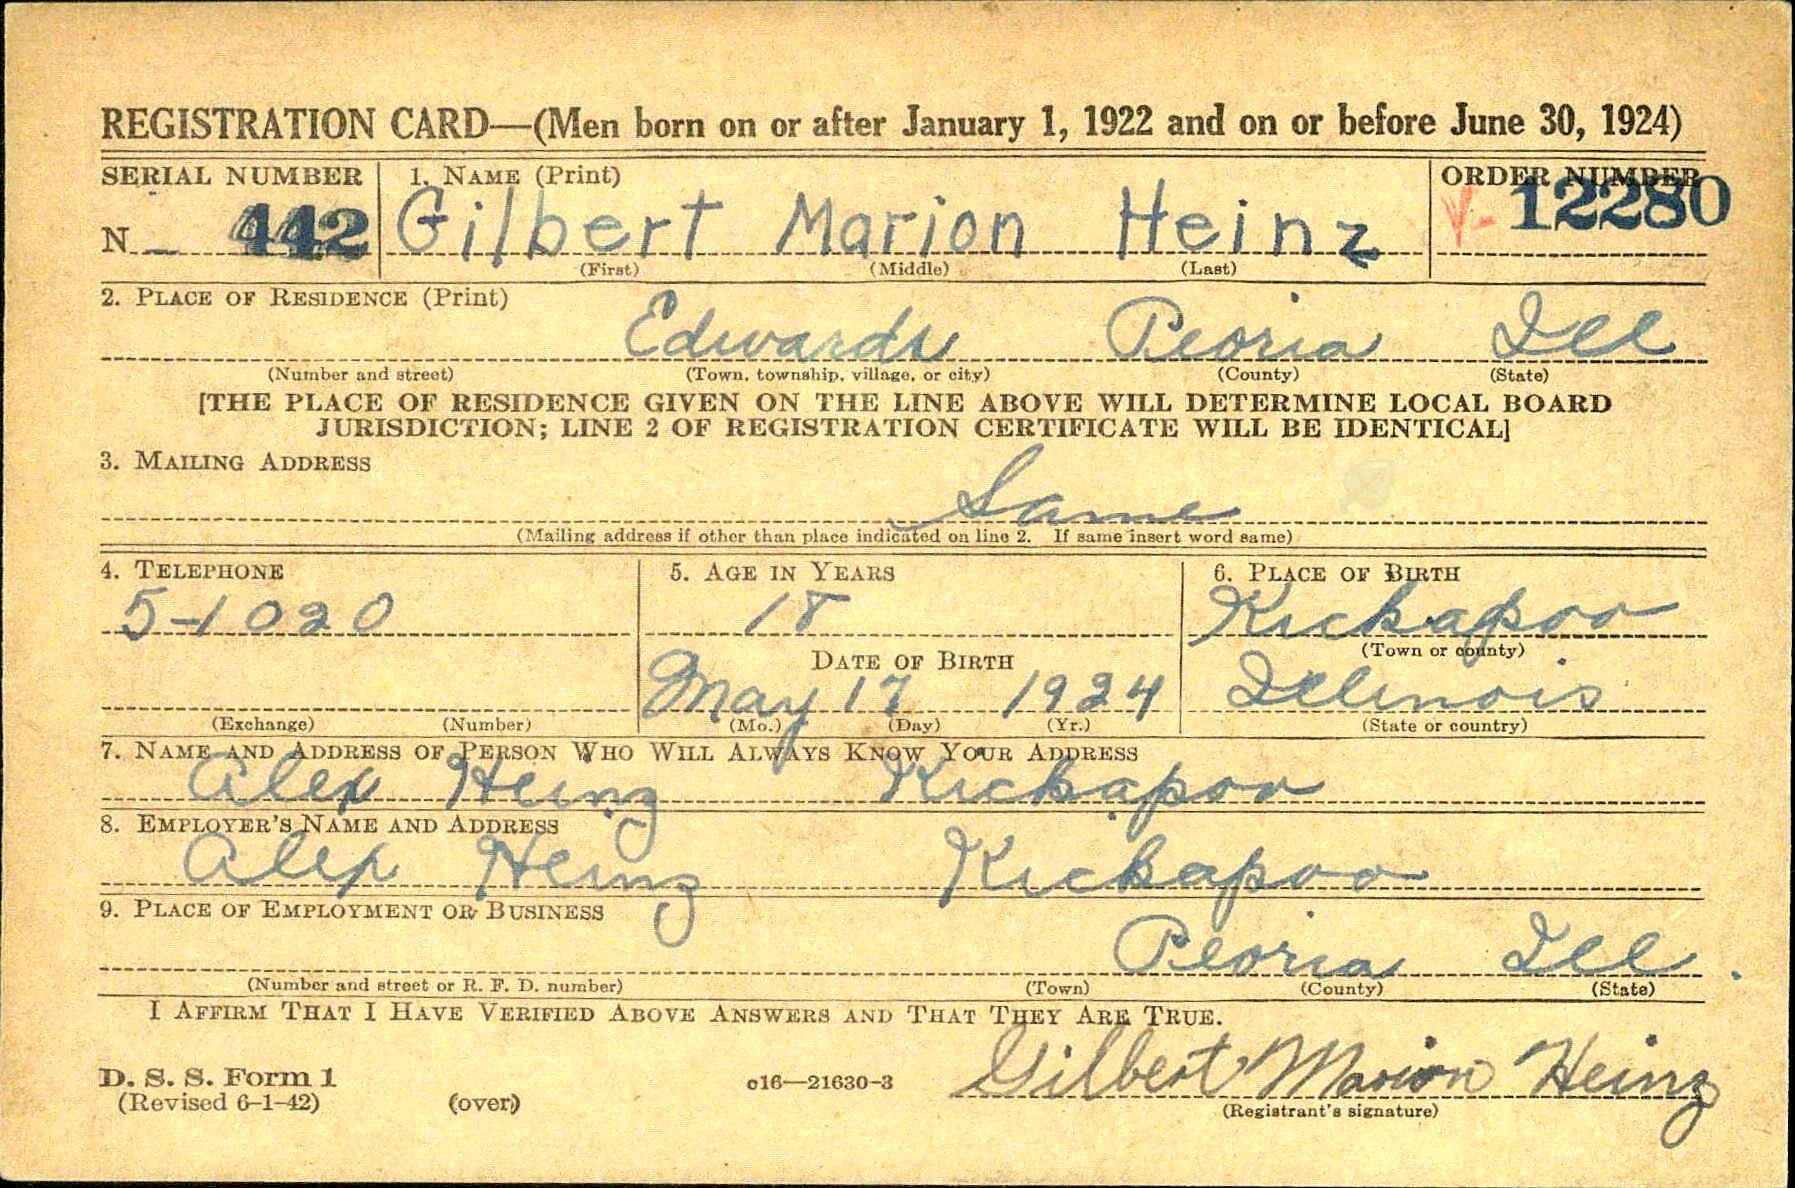 REGISTRATION CARD—(Men born on or after January 1, 1922 and on or before June 30, 1924)
SERIAL NUMBER 1. NAME (Print) ORDER NUMBER
N 442 Gilbert Marion Heinz 12280
(First) (Middle) (Last)
2. PLACE OF RESIDENCE (Print)
Edwards Peoria Ill
(Number and street) (Town, township, village, or city) (County) (State)
[THE PLACE OF RESIDENCE GIVEN ON THE LINE ABOVE WILL DETERMINE LOCAL BOARD
JURISDICTION; LINE 2 OF REGISTRATION CERTIFICATE WILL BE IDENTICAL]
3. MAILING ADDRESS
Same
(Mailing address if other than place indicated on line 2. If same insert word same)
4. TELEPHONE 5. AGE IN YEARS 6. PLACE OF BIRTH
5-1020 18 Kickapoo
(Town or county)
DATE OF BIRTH
May 17 1924 Illinois
(Exchange) (Number) (Mo.) (Day) (Yr.) (State or country)
7. NAME AND ADDRESS OF PERSON WHO WILL ALWAYS KNOW YOUR ADDRESS
Alex Heinz Kickapoo
8. EMPLOYER'S NAME AND ADDRESS
Alex Heinz Kickapoo
9. PLACE OF EMPLOYMENT OR BUSINESS
Peoria Ill.
(Number and street or R. F. D. number) (Town) (County) (State)
I AFFIRM THAT I HAVE VERIFIED ABOVE ANSWERS AND THAT THEY ARE TRUE.
Gilbert Marion Heinz
D. S. S. Form 1
(Revised 6-1-42) (over) c16—21630-3 (Registrant's signature)